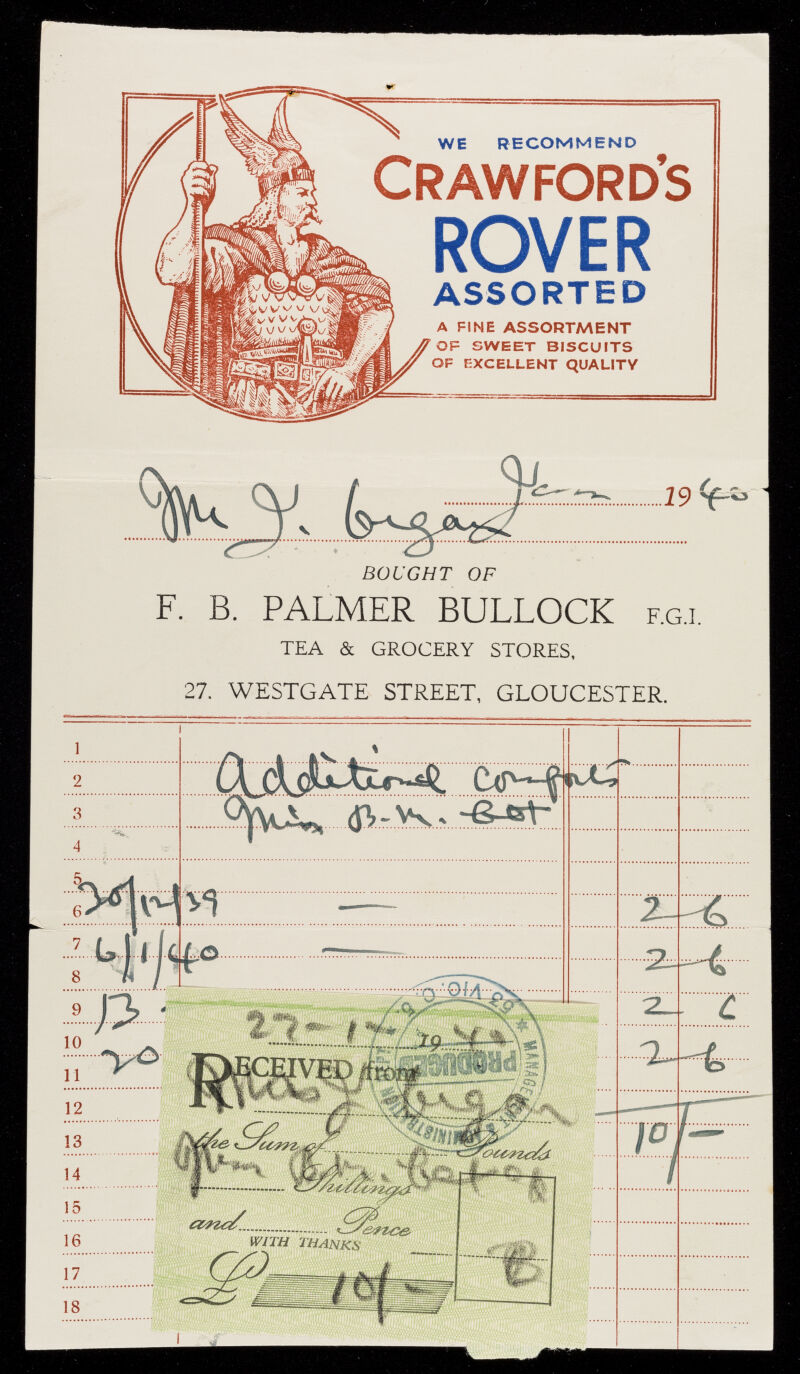 WE RECOMMEND
CRAWFORD'S
ROVER
ASSORTED
A FINE ASSORTMENT
OF SWEET BISCUITS
OF EXCELLENT QUALITY
Jan 1940
Mr J.
BOUGHT OF
F. B. PALMER BULLOCK F.G.I.
TEA & GROCERY STORES,
27. WESTGATE STREET, GLOUCESTER.
1
2 Additional comforts
3 Miss B. M.
4
5
6 30/12/39 — 2 6
7 6/1/40 — 2 6
8
9 13 2 6
10
11 20 2 6
12
13 10/-
14
15
16
17
18
53 VIC. C. 5
MANAGEMENT & ADMINISTRATION DEPT
PRODUCED
1940
RECEIVED from
the Sum of Pounds
Shillings
and Pence
WITH THANKS
B
£ 10/-